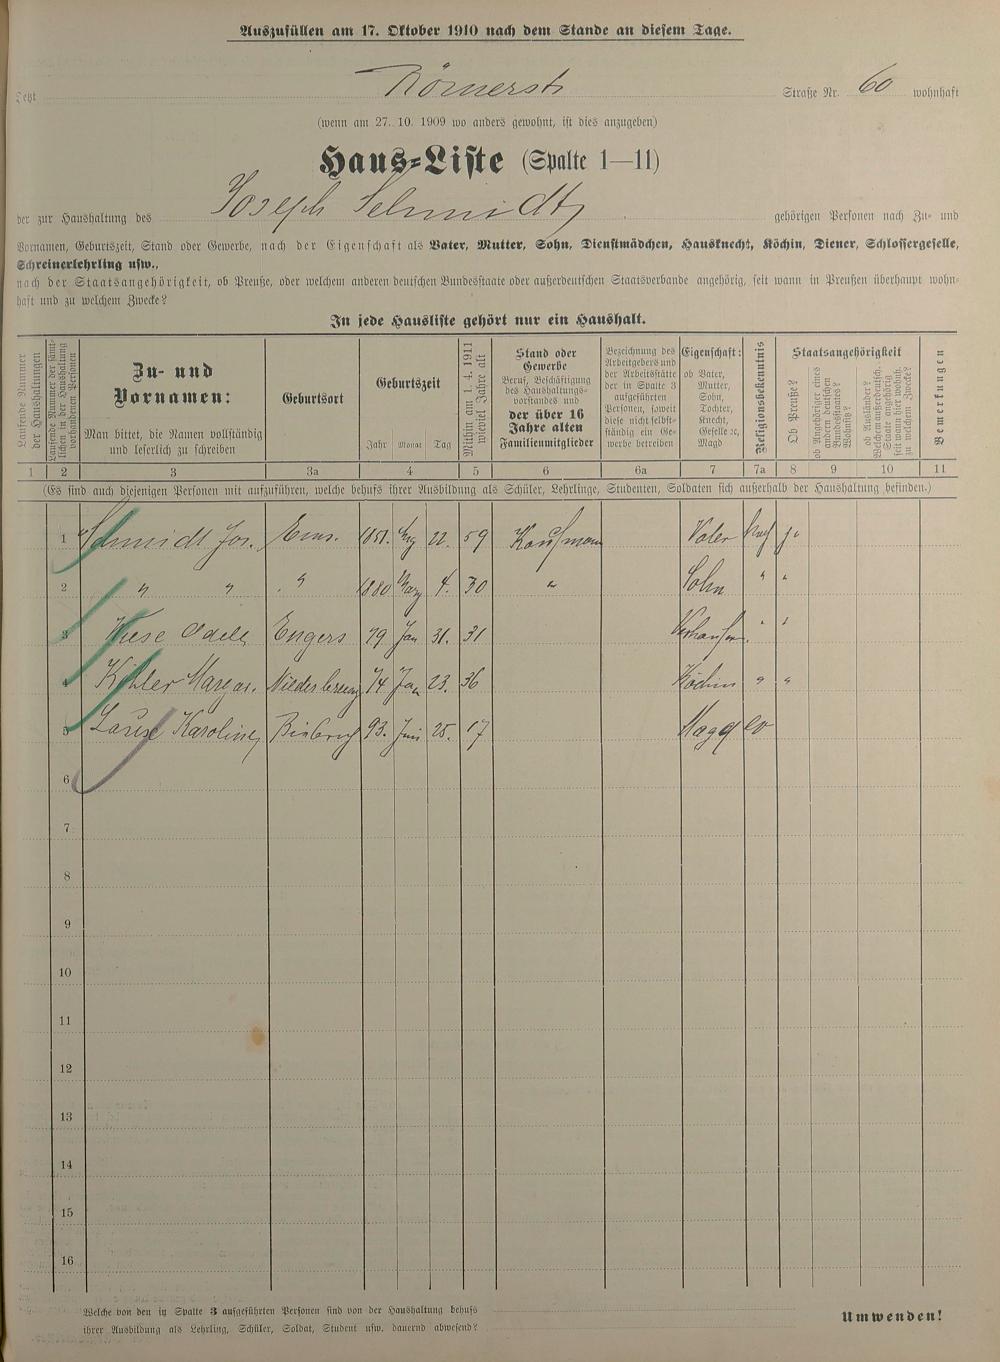 Auszufüllen am 17. Oktober 1910 nach dem Stande an diesem Tage.
Jetzt Römerstr Straße Nr. 60 wohnhaft
(wenn am 27. 10. 1909 wo anders gewohnt, ist dies anzugeben)
Haus-Liste (Spalte 1—11)
der zur Haushaltung des Joseph Schmidt gehörigen Personen nach Zu- und
Vornamen, Geburtszeit, Stand oder Gewerbe, nach der Eigenschaft als Vater, Mutter, Sohn, Dienstmädchen, Hausknecht, Köchin, Diener, Schlossergeselle,
Schreinerlehrling usw.,
nach der Staatsangehörigkeit, ob Preuße, oder welchem anderen deutschen Bundesstaate oder außerdeutschen Staatsverbande angehörig, seit wann in Preußen überhaupt wohn-
haft und zu welchem Zwecke?
In jede Hausliste gehört nur ein Haushalt.
Laufende Nummer der Haushaltungen
Laufende Nummer der sämtlichen in der Haushaltung vorhandenen Personen
Zu- und
Vornamen:
Man bittet, die Namen vollständig
und leserlich zu schreiben
Geburtsort
Geburtszeit
Jahr Monat Tag
Mithin am 1. 4. 1911 wieviel Jahre alt
Stand oder
Gewerbe
Beruf, Beschäftigung
des Haushaltungs-
vorstandes und
der über 16
Jahre alten
Familienmitglieder
Bezeichnung des
Arbeitgebers und
der Arbeitsstätte
der in Spalte 3
aufgeführten
Personen, soweit
diese nicht selbst-
ständig ein Ge-
werbe betreiben
Eigenschaft:
ob Vater,
Mutter,
Sohn,
Tochter,
Knecht,
Geselle ꝛc,
Magd
Religionsbekenntnis
Staatsangehörigkeit
Ob Preuße?
ob Angehöriger eines andern deutschen Bundesstaates? Wohnsitz?
ob Ausländer? Welchem außerdeutsch. Staate angehörig seit wann hier wohnh. zu welchem Zwecke?
Bemerkungen
1 2 3 3a 4 5 6 6a 7 7a 8 9 10 11
(Es sind auch diejenigen Personen mit aufzuführen, welche behufs ihrer Ausbildung als Schüler, Lehrlinge, Studenten, Soldaten sich außerhalb der Haushaltung befinden.)
1 Schmidt Jos. Ems. 1851. 22. 59 Kaufmann Vater kath ja
2 " " " 1880 März 4. 30 " Sohn " "
3 Wiese Adele Engers 79 Jan 31. 31 " "
4 Köhler Margar. 74 Jan 23. 36 Köchin " "
5 Karoline 93. Juni 25. 17 Magd ev
6
7
8
9
10
11
12
13
14
15
16
Welche von den in Spalte 3 aufgeführten Personen sind von der Haushaltung behufs
ihrer Ausbildung als Lehrling, Schüler, Soldat, Student usw. dauernd abwesend?
Umwenden!